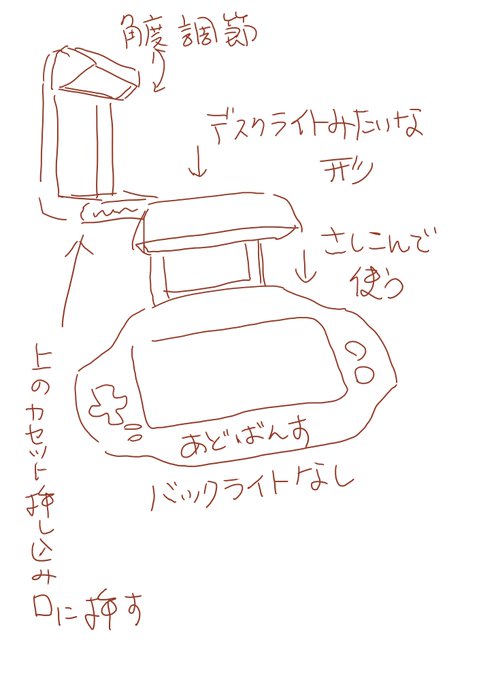 角度調節
デスクライトみたいな
形
さしこんで
使う
上のカセット押し込み
口に押す
あどばんす
バックライトなし